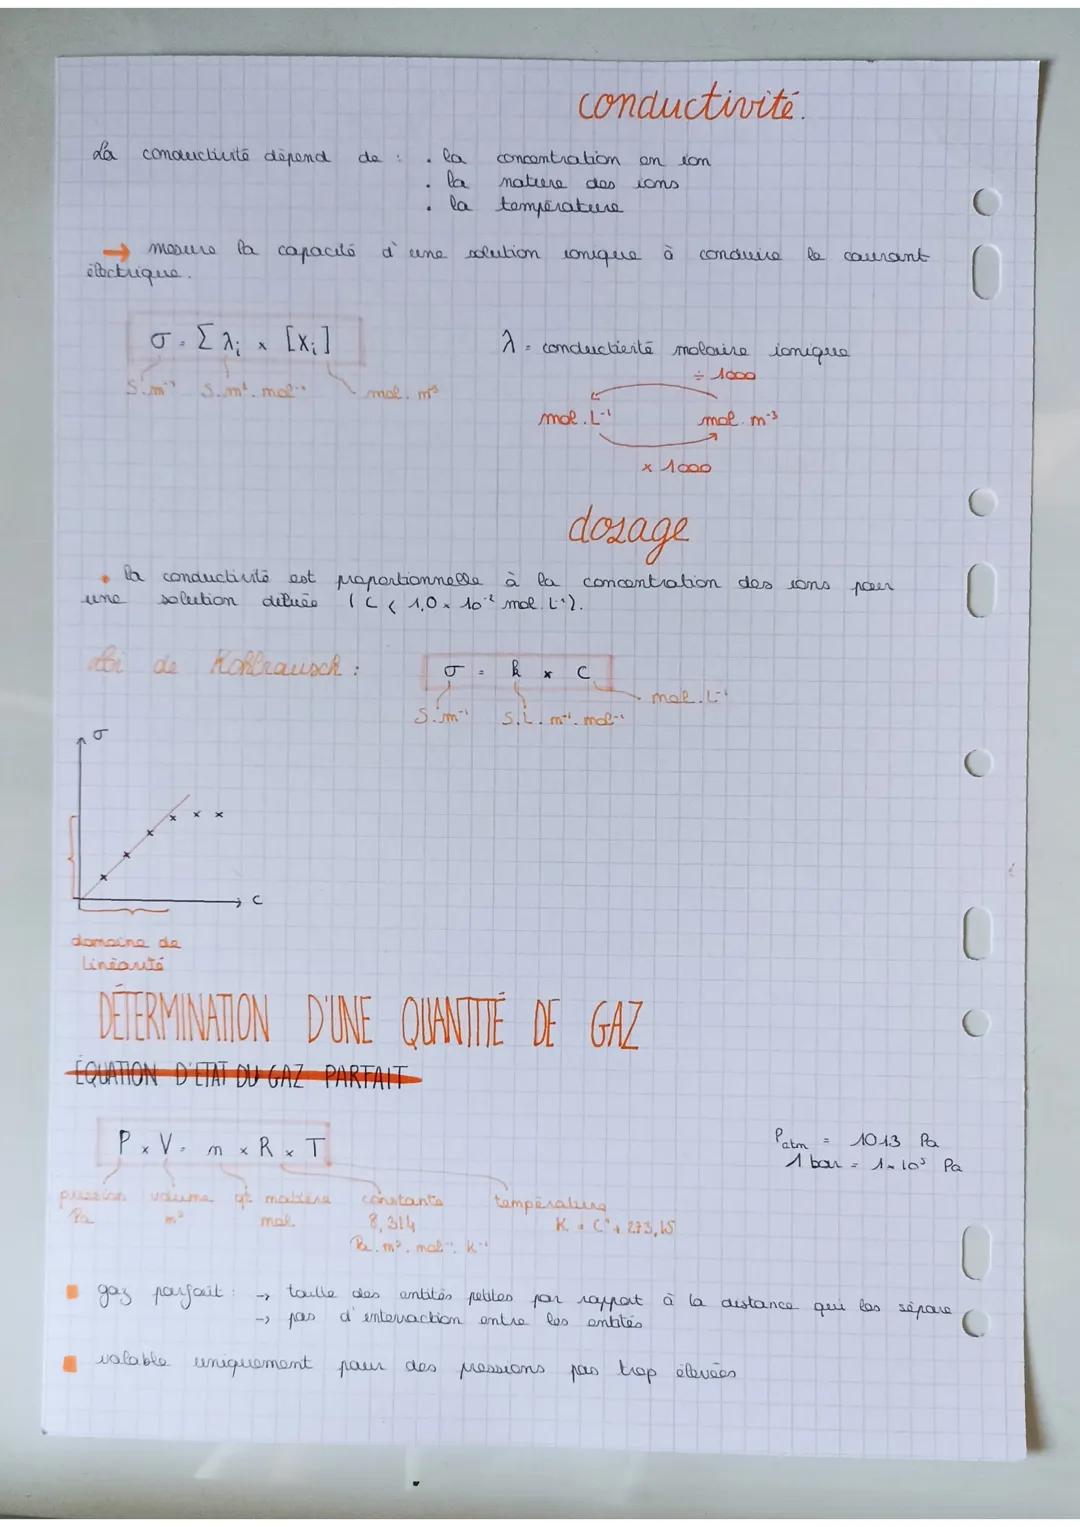 conductivité.
La conductivité dépend de : . la concentration en ion
. la nature des ions
. la température
→ mesure la capacité d'une solution ionique à conduire le courant
électrique.
σ = Σ λi × [Xi]
λ = conductivité molaire ionique
S.m⁻¹ S.m².mol⁻¹ mol.m³
÷ 1000
mol.L⁻¹ mol.m⁻³
× 1000
dosage
• la conductivité est proportionnelle à la concentration des ions pour
une solution diluée (C < 1,0 × 10⁻² mol.L⁻¹).
Loi de Kohlrausch : σ = k × C
S.m⁻¹ S.L.m⁻¹.mol⁻¹ mol.L⁻¹
σ
C
domaine de
linéarité
DÉTERMINATION D'UNE QUANTITÉ DE GAZ
ÉQUATION D'ÉTAT DU GAZ PARFAIT
P × V = n × R × T
Patm = 1013 Pa
1 bar = 1×10⁵ Pa
pression volume qt matière constante température
Pa m³ mol 8,314 K = C° + 273,15
Pa.m³.mol⁻¹.K⁻¹
gaz parfait : → taille des entités petites par rapport à la distance qui les sépare
→ pas d'interraction entre les entités
valable uniquement pour des pressions pas trop élevées